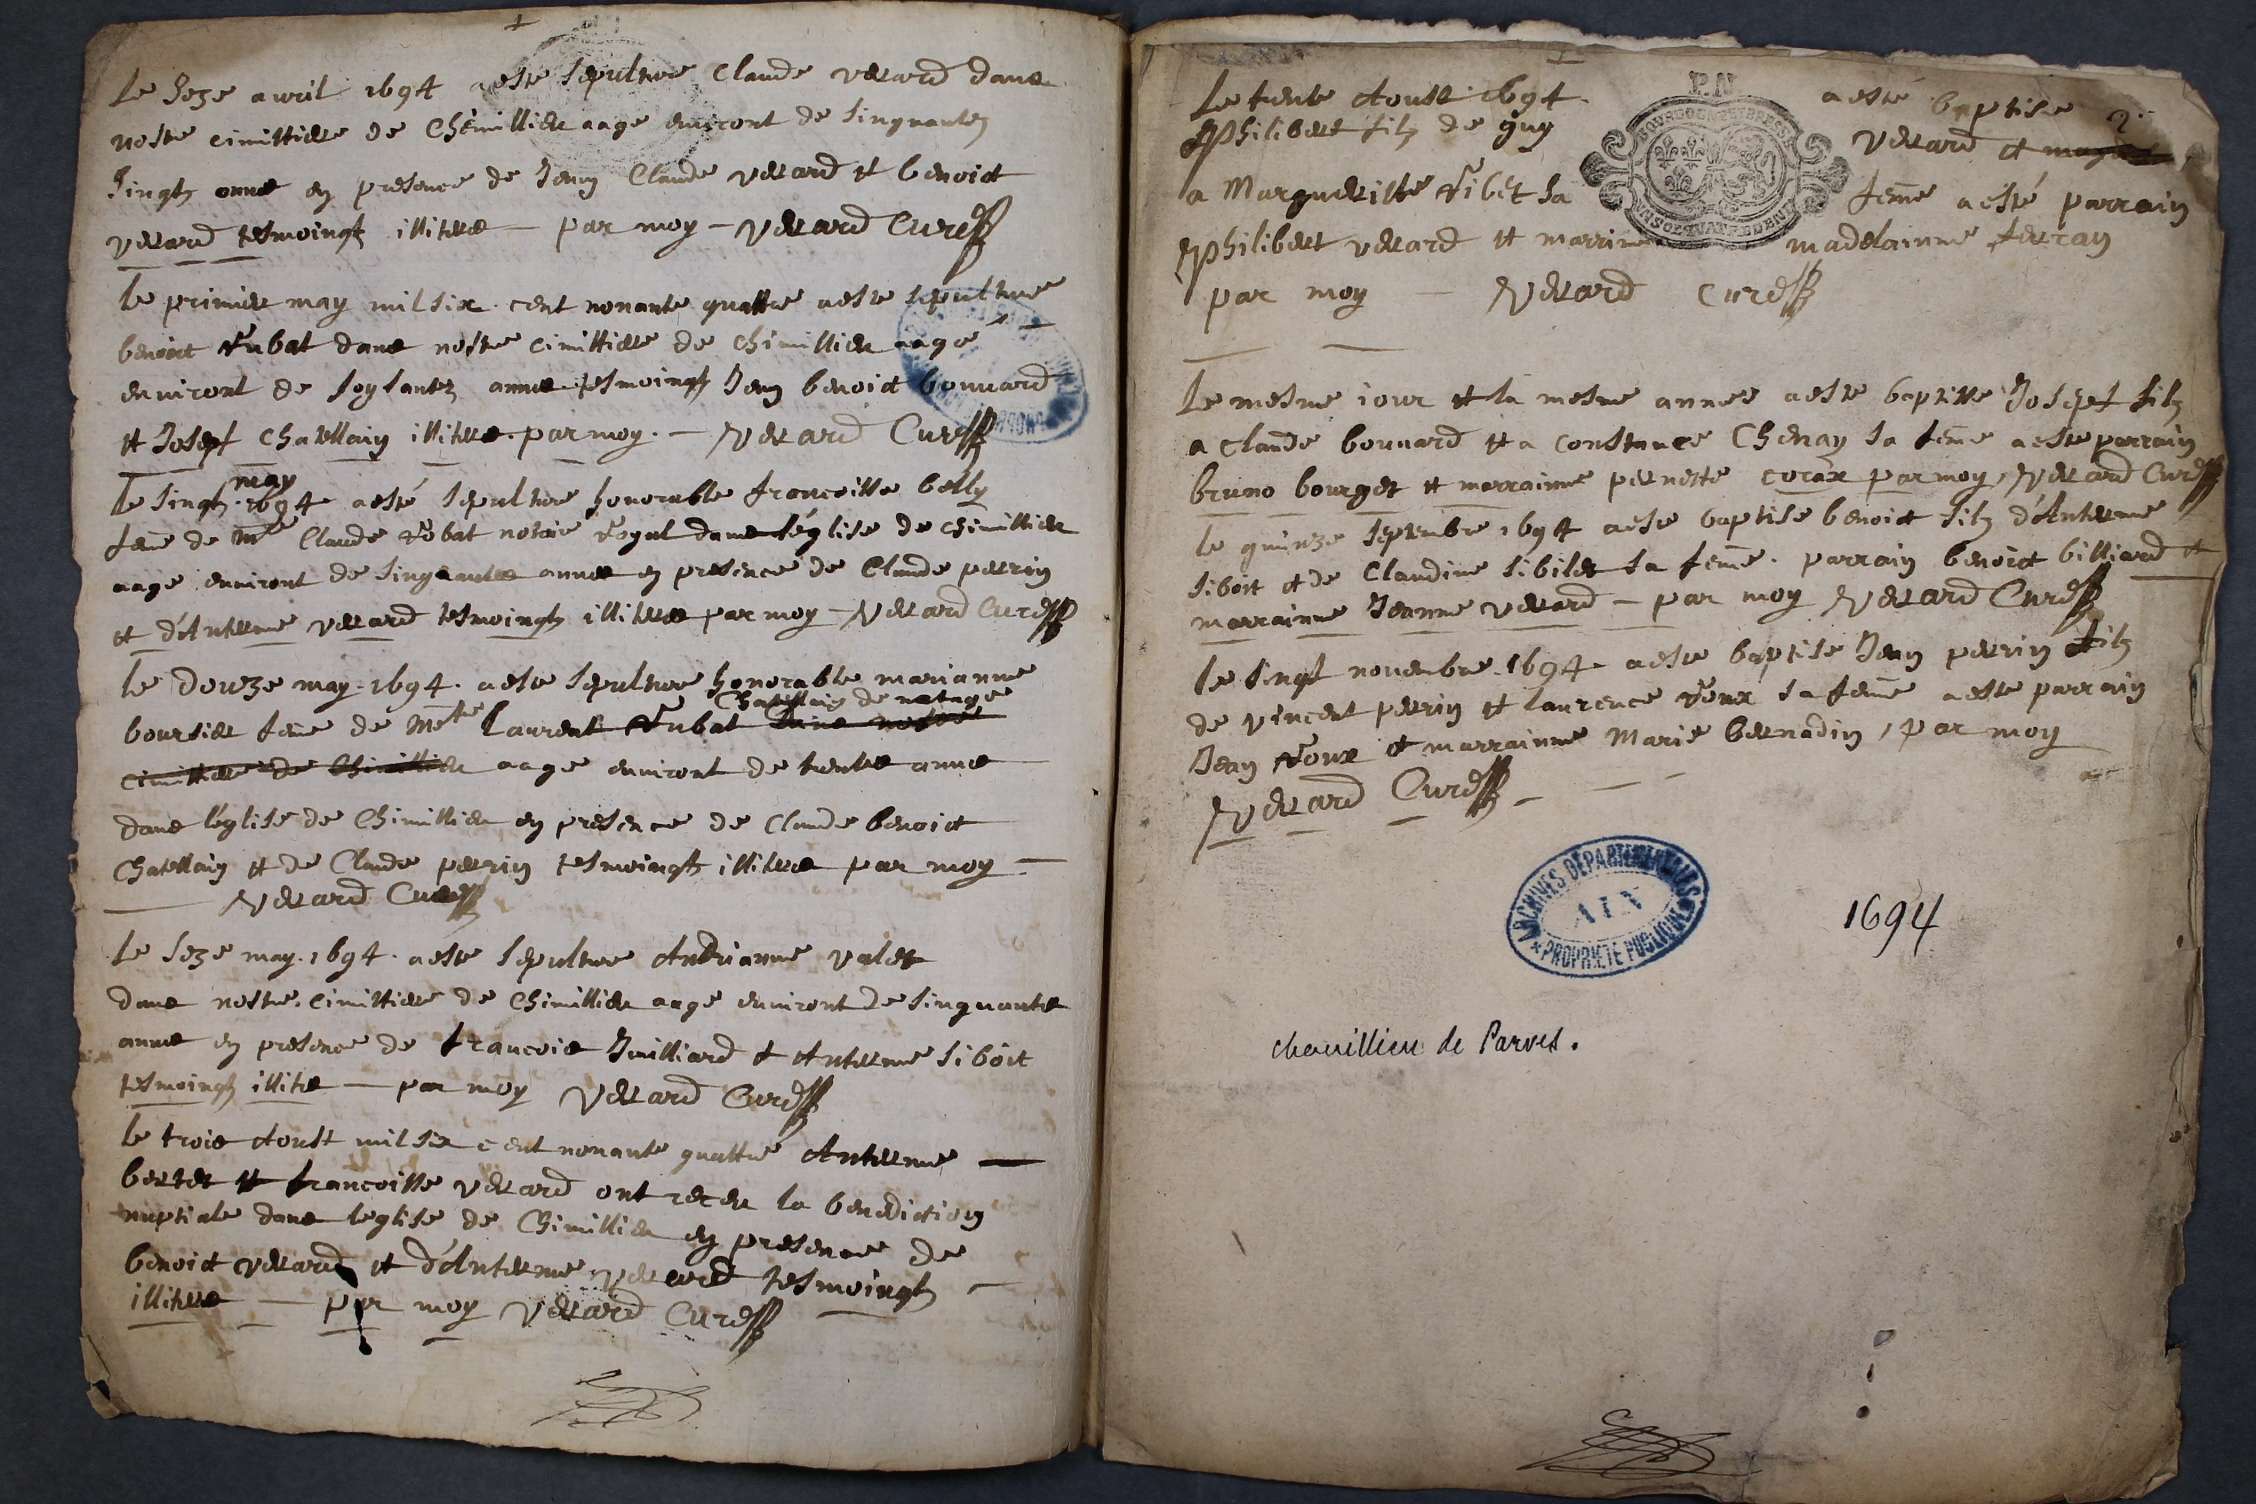 Le seze avril 1694 a este sepulture Claude verard dans
nostre cimittiere de Chemillieu aage environt de singuantez
singtz annes en presence de Jean Claude verard et benoict
verard tesmoingtz illiteres par moy verard Curé
le primier may mil six cent nonante quattre a este sepulture
benoict rubat dans nostre cimittiere de chimillieu aagé
environt de soysantez annes tesmoingtz Jean benoict bonnard
et Josept Chatellain illiteres par moy verard Curé
may
le singtz 1694 a esté sepulture honorable francoisse belly
feme de Me Claude rubat notaire royal dans léglise de chimillieu
aage environt de singuantes annes en presence de Claude perrin
et d'Anterme verard tesmoingtz illiteres par moy verard Curé
le douze may 1694 a este sepulture honorable marianne
Chatellain de
boursier feme de Mtre Laurent rubat dans nostre
cimittiere de Chimillieu aage environt de trentes annes
dans léglise de Chimillieu en presence de Claude benoict
Chatellain et de Claude perrin tesmoingtz illiteres par moy
verard Curé
le seze may 1694 a este sepulture Andrianne valet
dans nostre cimittiere de chimillieu aage environt de singuante
annes en presence de francois Juilliard et Anterme siboit
tesmoingtz illitres par moy verard Curé
le trois Aoust mil six cent nonante quattre Anterme
bertet et francoisse verard ont receu la benediction
nuptiale dans leglise de Chimillieu en presence de
benoict verard et d'Anterme verard tesmoingtz
illiteres par moy verard Curé
Le trente Aoust 1694 a esté baptise
2
Philibert filz de guy verard et
a Margueritte ribet sa feme a esté parrain
Philibert verard et marrine madelainne ferran
par moy verard curé
Le mesme iour et la mesme annees a este baptisse Josept filz
a claude bonnard et a constance Chenay sa feme a este parrain
bruno bourget et marrainne pernette corax par moy verard Curé
le quinze septembre 1694 a este baptise benoict filz d'Anterme
siboit et de Claudine sibilet sa feme parrain benoict billiard et
marrainne Jeanne verard par moy verard Curé
le singt novembre 1694 a este baptise Jean perrin filz
de vincent perrin et laurence roux sa feme a este parrain
Jean roux et marrainne Marie bernadin par moy
verard Curé
ARCHIVES DÉPARTEMENTALES
AIN
PROPRIÉTÉ PUBLIQUE
1694
chemillieu de Parves.